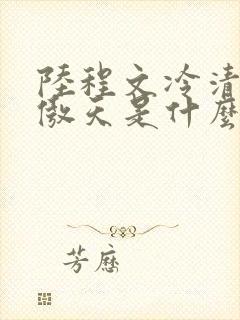 陸程文冷清
傲天是什麼
芳歷